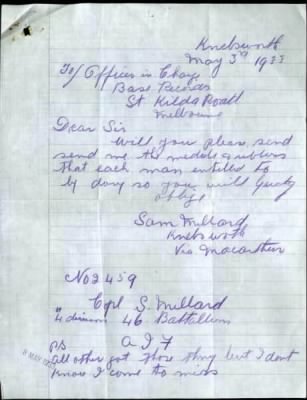 Knebsworth
May 3rd 1933
To/ Officer in Charge
Base Records
St Kilda Road
Melbourne
Dear Sir
Will you please send
send me the medals & ribbons
that each man entitled to
by doing so you will greatly
oblige
Sam Millard
Knebsworth
Via Macarthur
No 2459
Cpl S. Millard
4 division 46 Battallion
A I F
PS
all other got those thing but I dont
know I come to miss
8 MAY